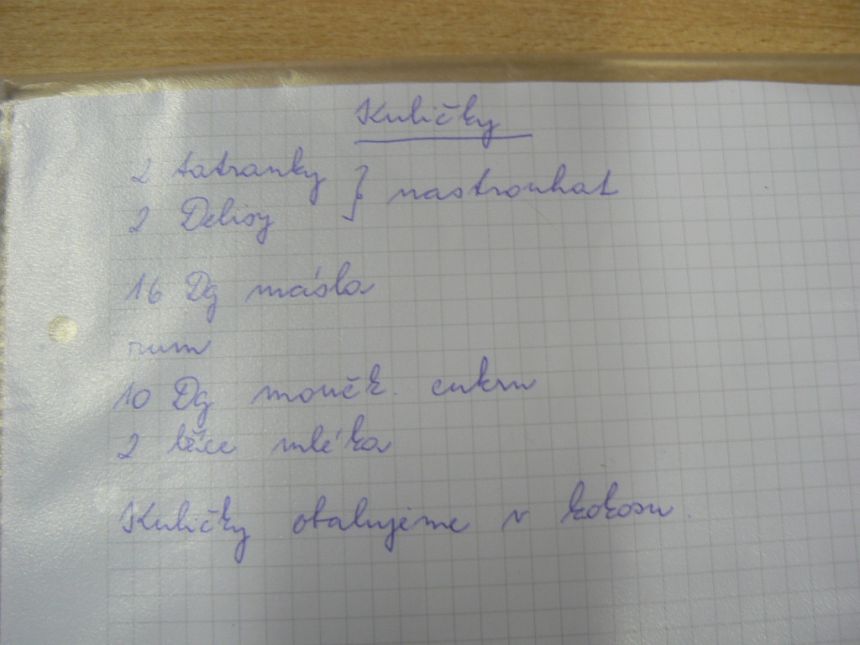 Kuličky
2 tatranky } nastrouhat
2 Delisy
16 Dg másla
rum
10 Dg moučk. cukru
2 lžíce mléka
Kuličky obalujeme v kokosu.